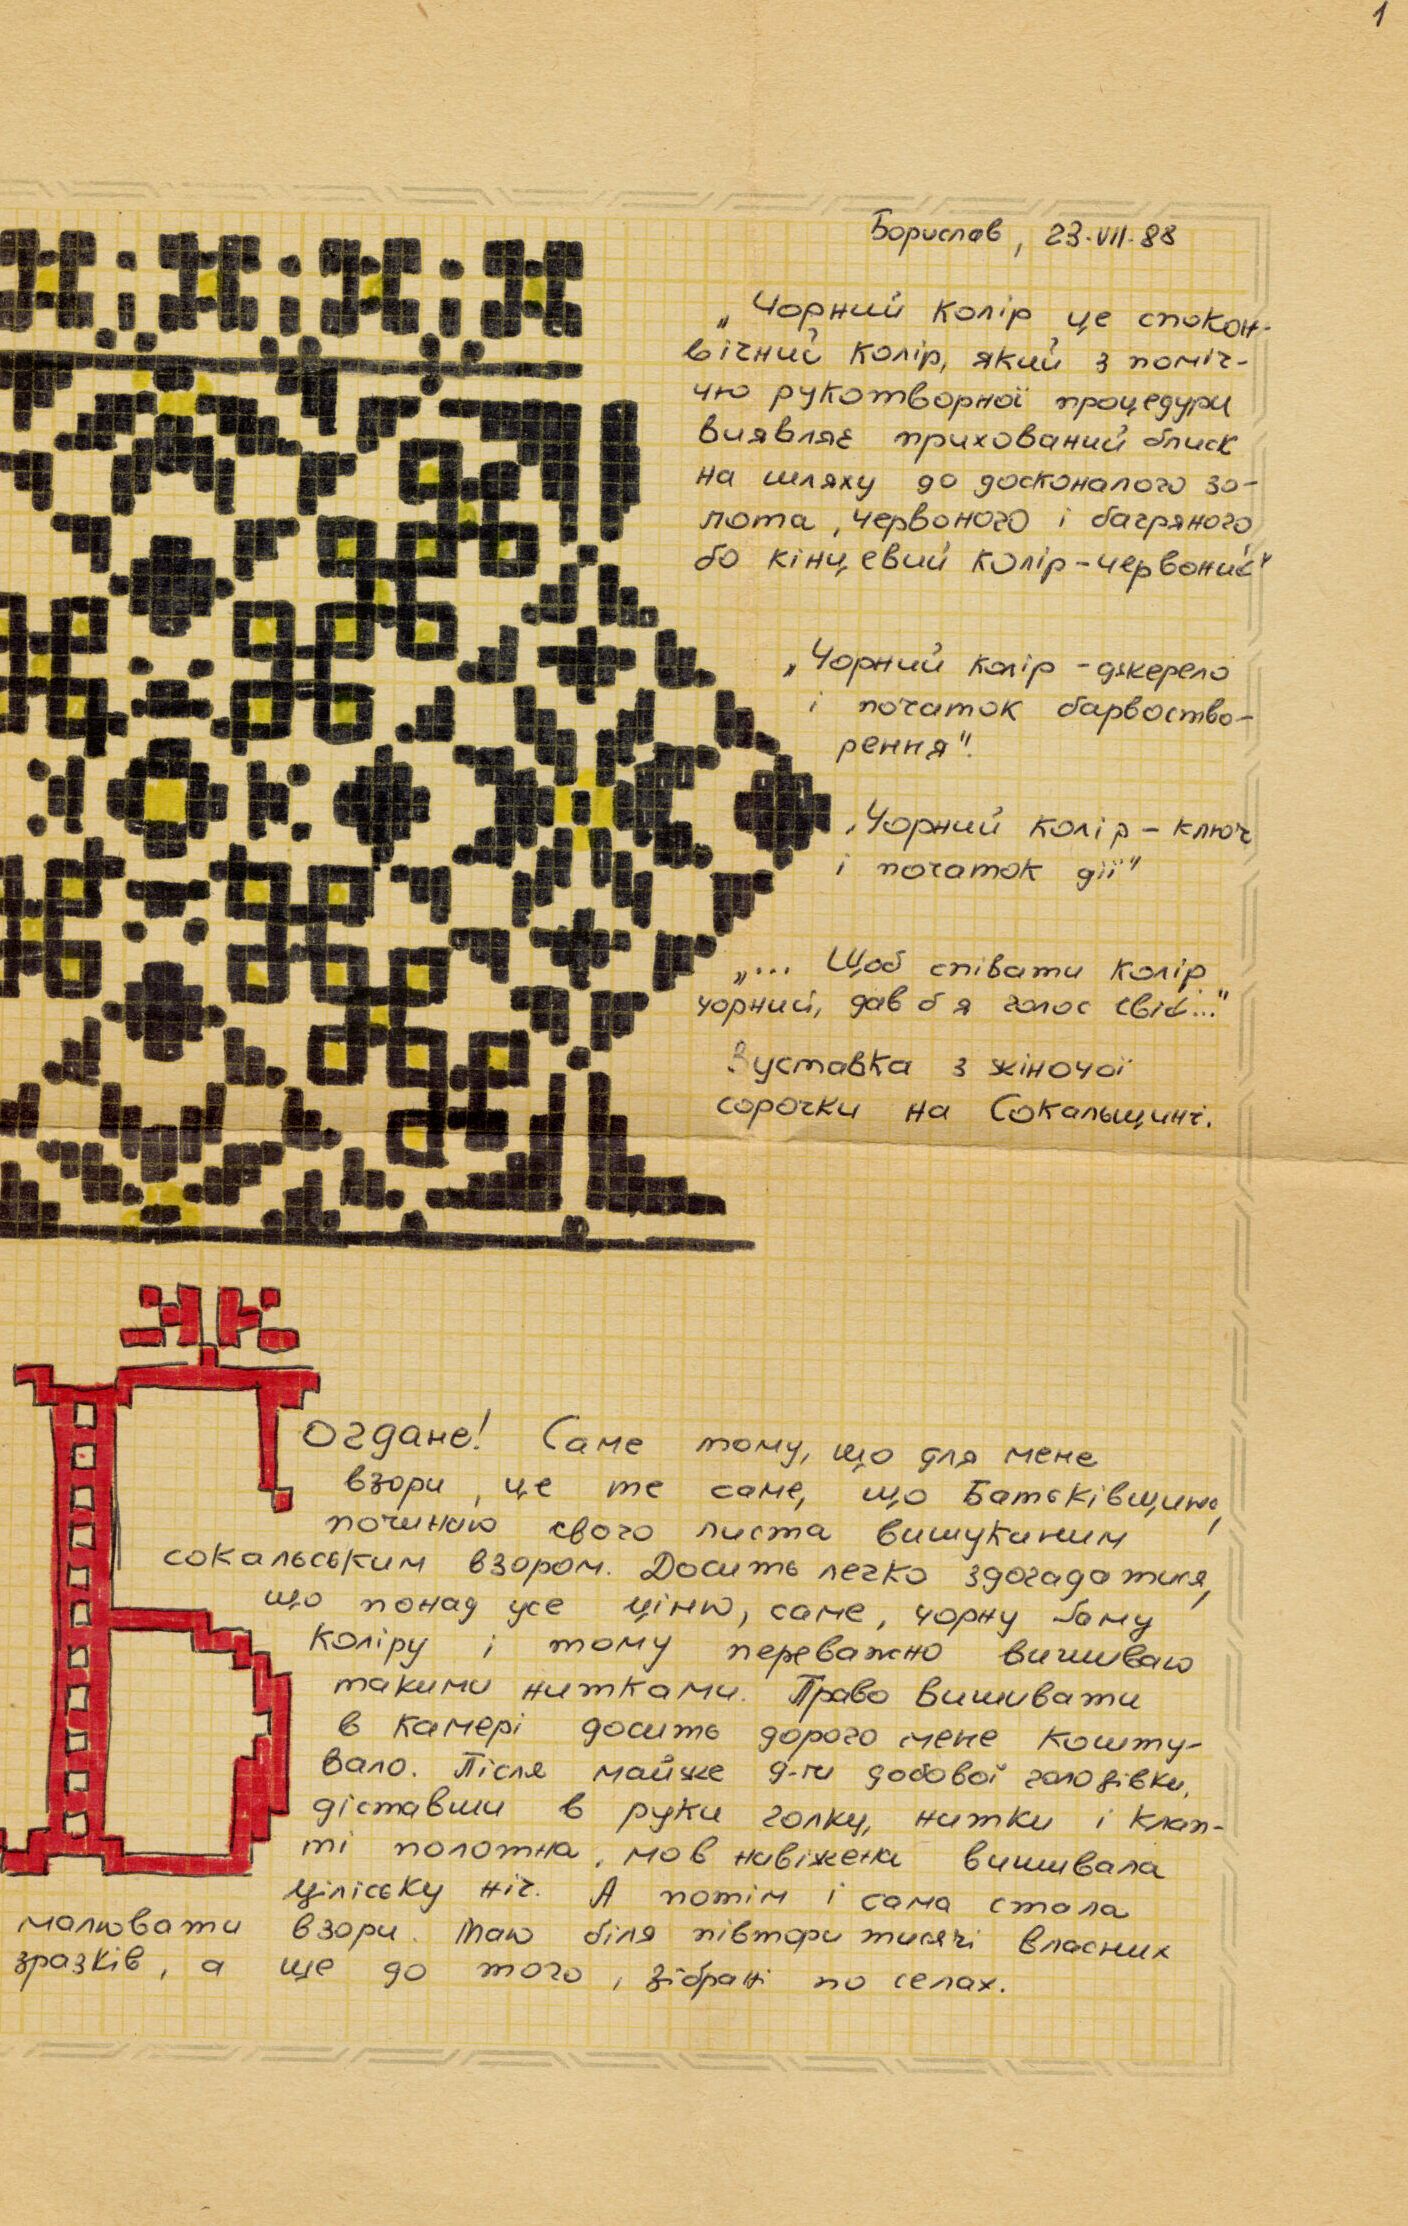 1
Борислав, 23.VII.88
„Чорний колір це спокон-
вічний колір, який з поміч-
чю рукотворної процедури
виявляє прихований блиск
на шляху до досконалого зо-
лота, червоного і багряного
бо кінцевий колір-червоний"
„Чорний колір - джерело
і початок барвоство-
рення".
„Чорний колір - ключ
і початок дії"
„... Щоб співати колір
чорний, дав б я голос свій..."
Вуставка з жіночої
сорочки на Сокальщині.
Богдане! Саме тому, що для мене
взори, це те саме, що Батьківщина,
починаю свого листа вишуканим
сокальським взором. Досить легко здогадатися,
що понад усе ціню, саме, чорну гаму
коліру і тому переважно вишиваю
такими нитками. Право вишивати
в камері досить дорого мене кошту-
вало. Після майже 9-ти добової голодівки,
діставши в руки голку, нитки і клап-
ті полотна, мов навіжена вишивала
ціліську ніч. А потім і сама стала
малювати взори. Маю біля півтори тисячі власних
зразків, а ще до того, зібрані по селах.